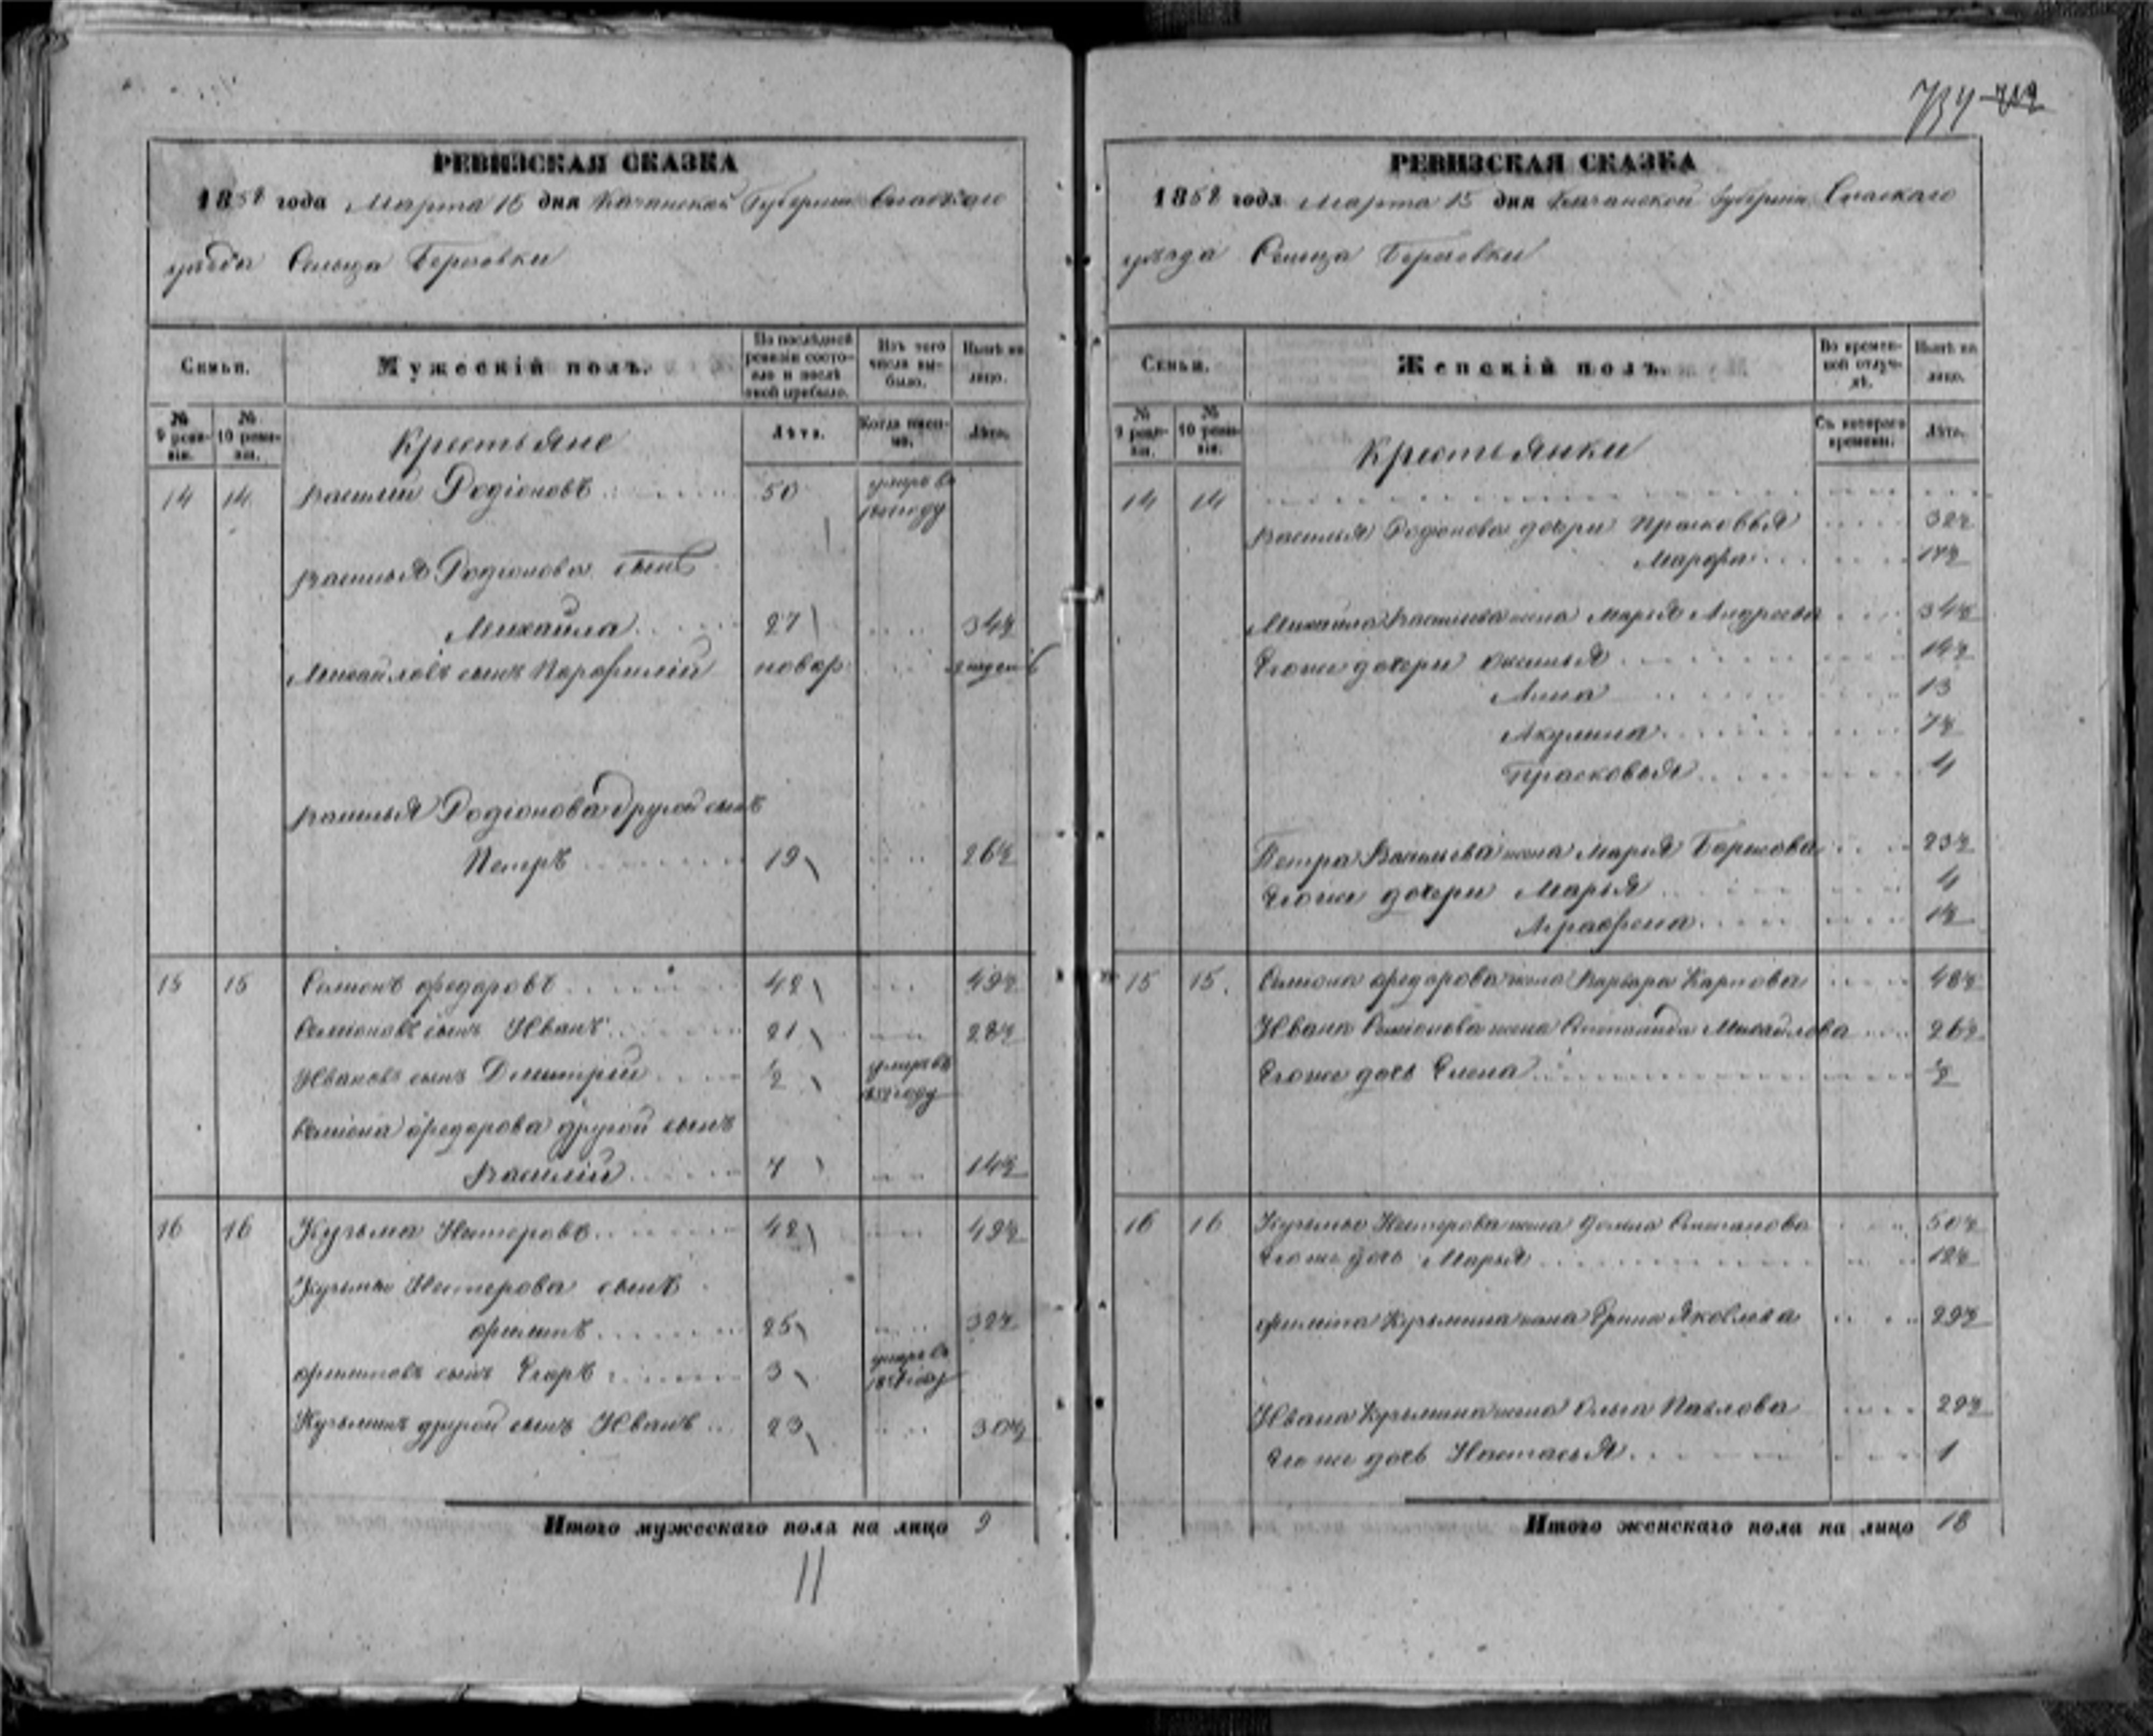 734 712
РЕВИЗСКАЯ СКАЗКА
1858 года Марта 15 дня Казанской Губернии Спаскаго
уѣзда Сельца Березовки
Семьи.
Мужескій полъ.
По послѣдней ревизіи состояло и послѣ оной прибыло.
Изъ того числа выбыло.
Нынѣ на лицо.
№ 9 ревизіи.
№ 10 ревизіи.
Крестьяне
Лѣта.
Когда именно.
Лѣта.
14 14 Василій Родіоновъ 50 умеръ въ
году
Василья Родіонова сынъ
Михаила 27 34½
Михайловъ сынъ Парфилій новор.
Василья Родіонова другой сынъ
Петръ 19 26½
15 15 Семіонъ Федоровъ 42 49½
Семіоновъ сынъ Иванъ 21 28½
Ивановъ сынъ Дмитрій ½ умеръ въ
году
Семіона Федорова другой сынъ
Василій 7 14½
16 16 Кузьма Нестеровъ 42 49½
Кузьмы Нестерова сынъ
Филипъ 25 32½
Филиповъ сынъ Егоръ 3 умеръ въ
году
Кузьминъ другой сынъ Иванъ 23 30½
Итого мужескаго пола на лицо 9
11
РЕВИЗСКАЯ СКАЗКА
1858 года Марта 15 дня Казанской Губерніи Спаскаго
уѣзда Сельца Березовки
Семьи.
Женскій полъ.
Во временной отлучкѣ.
Нынѣ на лицо.
№ 9 ревизіи.
№ 10 ревизіи.
Крестьянки
Съ котораго времени.
Лѣта.
14 14
Василья Родіонова дочери Прасковья 32½
Марфа 17½
Михаила Васильева жена Марья Андреева 34½
Его же дочери Аксинья 14½
Анна 13
Акулина 7½
Прасковья 4
Петра Васильева жена Марья Борисова 23½
Его же дочери Марья 4
Аграфена 1½
15 15. Семіона Федорова жена Варвара Карпова 48½
Ивана Семіонова жена Степанида Михайлова 26½
Его же дочь Елена ½
16 16 Кузьмы Нестерова жена Домна Степанова 50½
Его же дочь Марья 12½
Филипа Кузьмина жена Ирина Яковлева 29½
Ивана Кузьмина жена Ольга Павлова 29½
Его же дочь Настасья 1
Итого женскаго пола на лицо 18